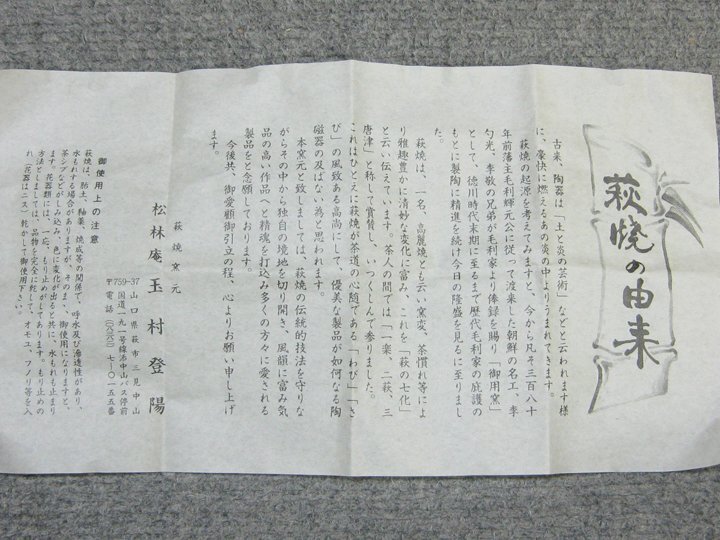 萩焼の由来
古来、陶器は「土と炎の芸術」などと云われます様
に、豪快に燃えるあの窯の中よりうまれてきます。
萩焼の起源を考えてみますと、今から凡そ三百八十
年前藩主毛利輝元公に従って渡来した朝鮮の名工、李
勺光、李敬の兄弟が毛利家より俸録を賜り「御用窯」
として、徳川時代末期に至るまで歴代毛利家の庇護の
もとに製陶に精進を続け今日の隆盛を見るに至りまし
た。
萩焼は、一名、高麗焼とも云い窯変、茶慣れ等によ
り雅趣豊かに清妙な変化に富み、これを「萩の七化」
と云い伝えています。茶人の間では「一楽、二萩、三
唐津」と称して賞賛し、いつくしんで参りました。
これはひとえに萩焼が茶道の心随である「わび」「さ
び」の風致ある高尚にして、優美な製品が如何なる陶
磁器の及ばない為と思われます。
本窯元と致しましては、萩焼の伝統的技法を守りな
がらその中から独自の境地を切り開き、風韻に富み気
品の高い作品へと精魂を打込み多くの方々に愛される
製品をと念願しております。
今後共、御愛顧御引立の程、心よりお願い申し上げ
ます。
萩焼窯元
松林庵 玉村登陽
〒759-37 山口県萩市三見中山
国道一九一号線添中山バス停前
電話(〇八三八)七-〇一五五番
御使用上の注意
萩焼は、胎土、釉薬、焼成等の関係で、呼水及び滲透性があり、
水もれする場合がありますが、そのまゝ、御使用になりますと、
茶シブなどがしみ込み、色に変化が出ると共に、水もれも止まり
ます。花器類には、一応、もり止めがしてあります。もり止めの
方法としましては、品物を完全に乾して、オモユ、フノリ等を入
れ(花器はニス)乾かして御使用下さい。